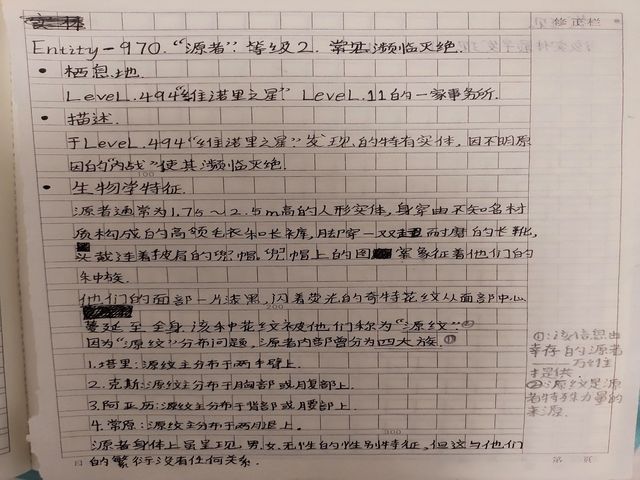 实体
Entity-970.“源者”. 等级2. 常某濒临灭绝.
• 栖息地.
LeveL.494“维诺里之星” LeveL.11的一家事务所.
• 描述.
于LeveL.494“维诺里之星”发现的特有实体,因不明原
因的“内战”使其濒临灭绝.
100
• 生物学特征.
源者通常为1.75~2.5m高的人形实体,身穿由不知名材
质构成的高领毛衣和长裤,脚穿一双耐磨的长靴,
头戴连着披肩的兜帽.兜帽上的图案象征着他们的
种族.
他们的面部一片漆黑,闪着荧光的奇特花纹从面部中心
200
蔓延至全身.该种花纹被他们称为“源纹”②
因为“源纹”分布问题,源者内部曾分为四大族.①
1.塔里:源纹主分布于两手臂上.
2.克斯:源纹主分布于胸部或腹部上.
3.阿亚历:源纹主分布于背部或腰部上.
4.常原:源纹主分布于两腿上.
300
源者身体上虽呈现,男女无性的性别特征,但这与他们
的繁衍没有任何关系.
修正栏
①:该信息由
幸存的源者
——万维
提供.
②源纹是源
者特殊力量的
来源.
月
第 页